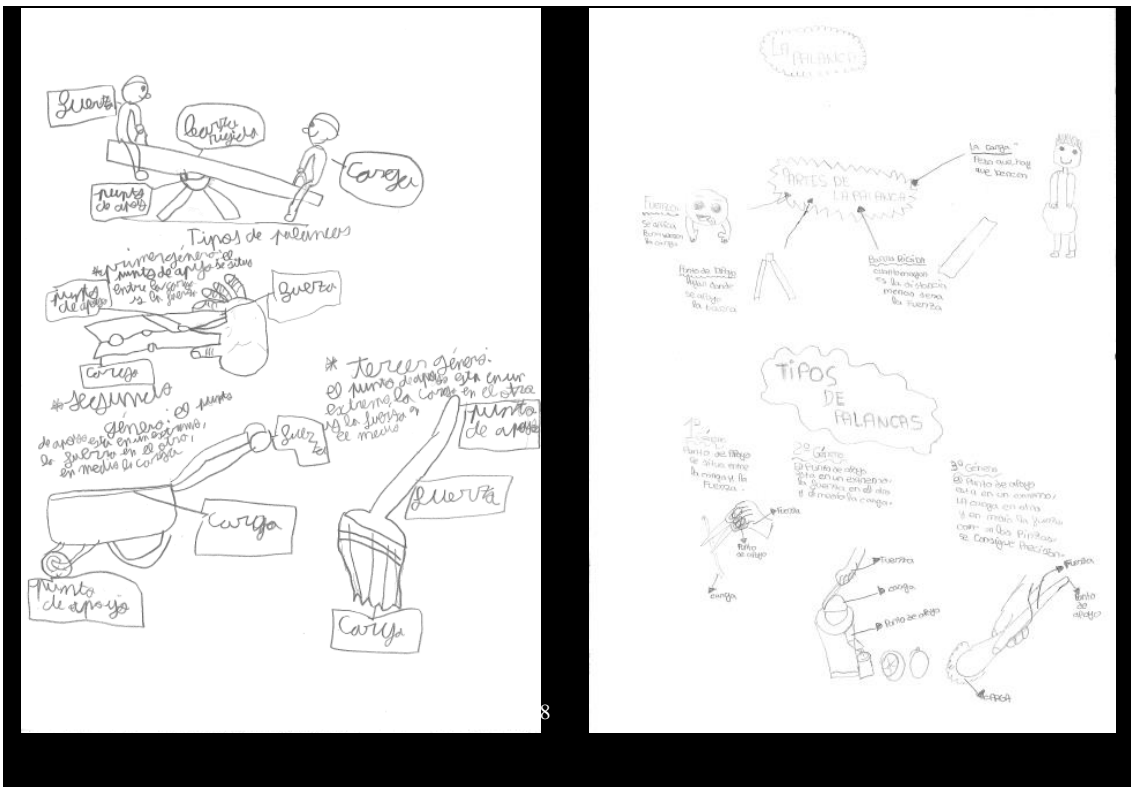 fuerza
barra rigida
carga
punto
de apoyo
Tipos de palancas
* primer género: el
punto de apoyo se situa
entre la carga
y la fuerza
punto
de apoyo
fuerza
carga
* segundo
género: el punto
de apoyo esta en un extremo,
la fuerza en el otro,
en medio la carga
fuerza
carga
punto
de apoyo
* tercer género:
el punto de apoyo esta en un
extremo, la carga en el otro
y la fuerza en
el medio
punto
de apoyo
fuerza
carga
8
LA
PALANCA
PARTES DE
LA PALANCA
La carga:
Peso que hay
que vencer
Fuerza
se aplica
para vencer
la carga
Punto de Apoyo
lugar donde
se apoya
la barra
Barra RIGIDA
es la distancia
menor sera
la Fuerza
TIPOS
DE
PALANCAS
1º Género
Punto de Apoyo
se situa entre
la carga y la
Fuerza.
Fuerza
Punto
de apoyo
carga
2º Género
El Punto de apoyo
esta en un extremo,
la fuerza en el otro
y la carga.
Fuerza
carga
Punto de apoyo
3º Género
El Punto de apoyo
esta en un extremo,
la carga en otro
y en medio la fuerza
con las Pinzas
se consigue Precision.
Fuerza
Punto
de
apoyo
CARGA